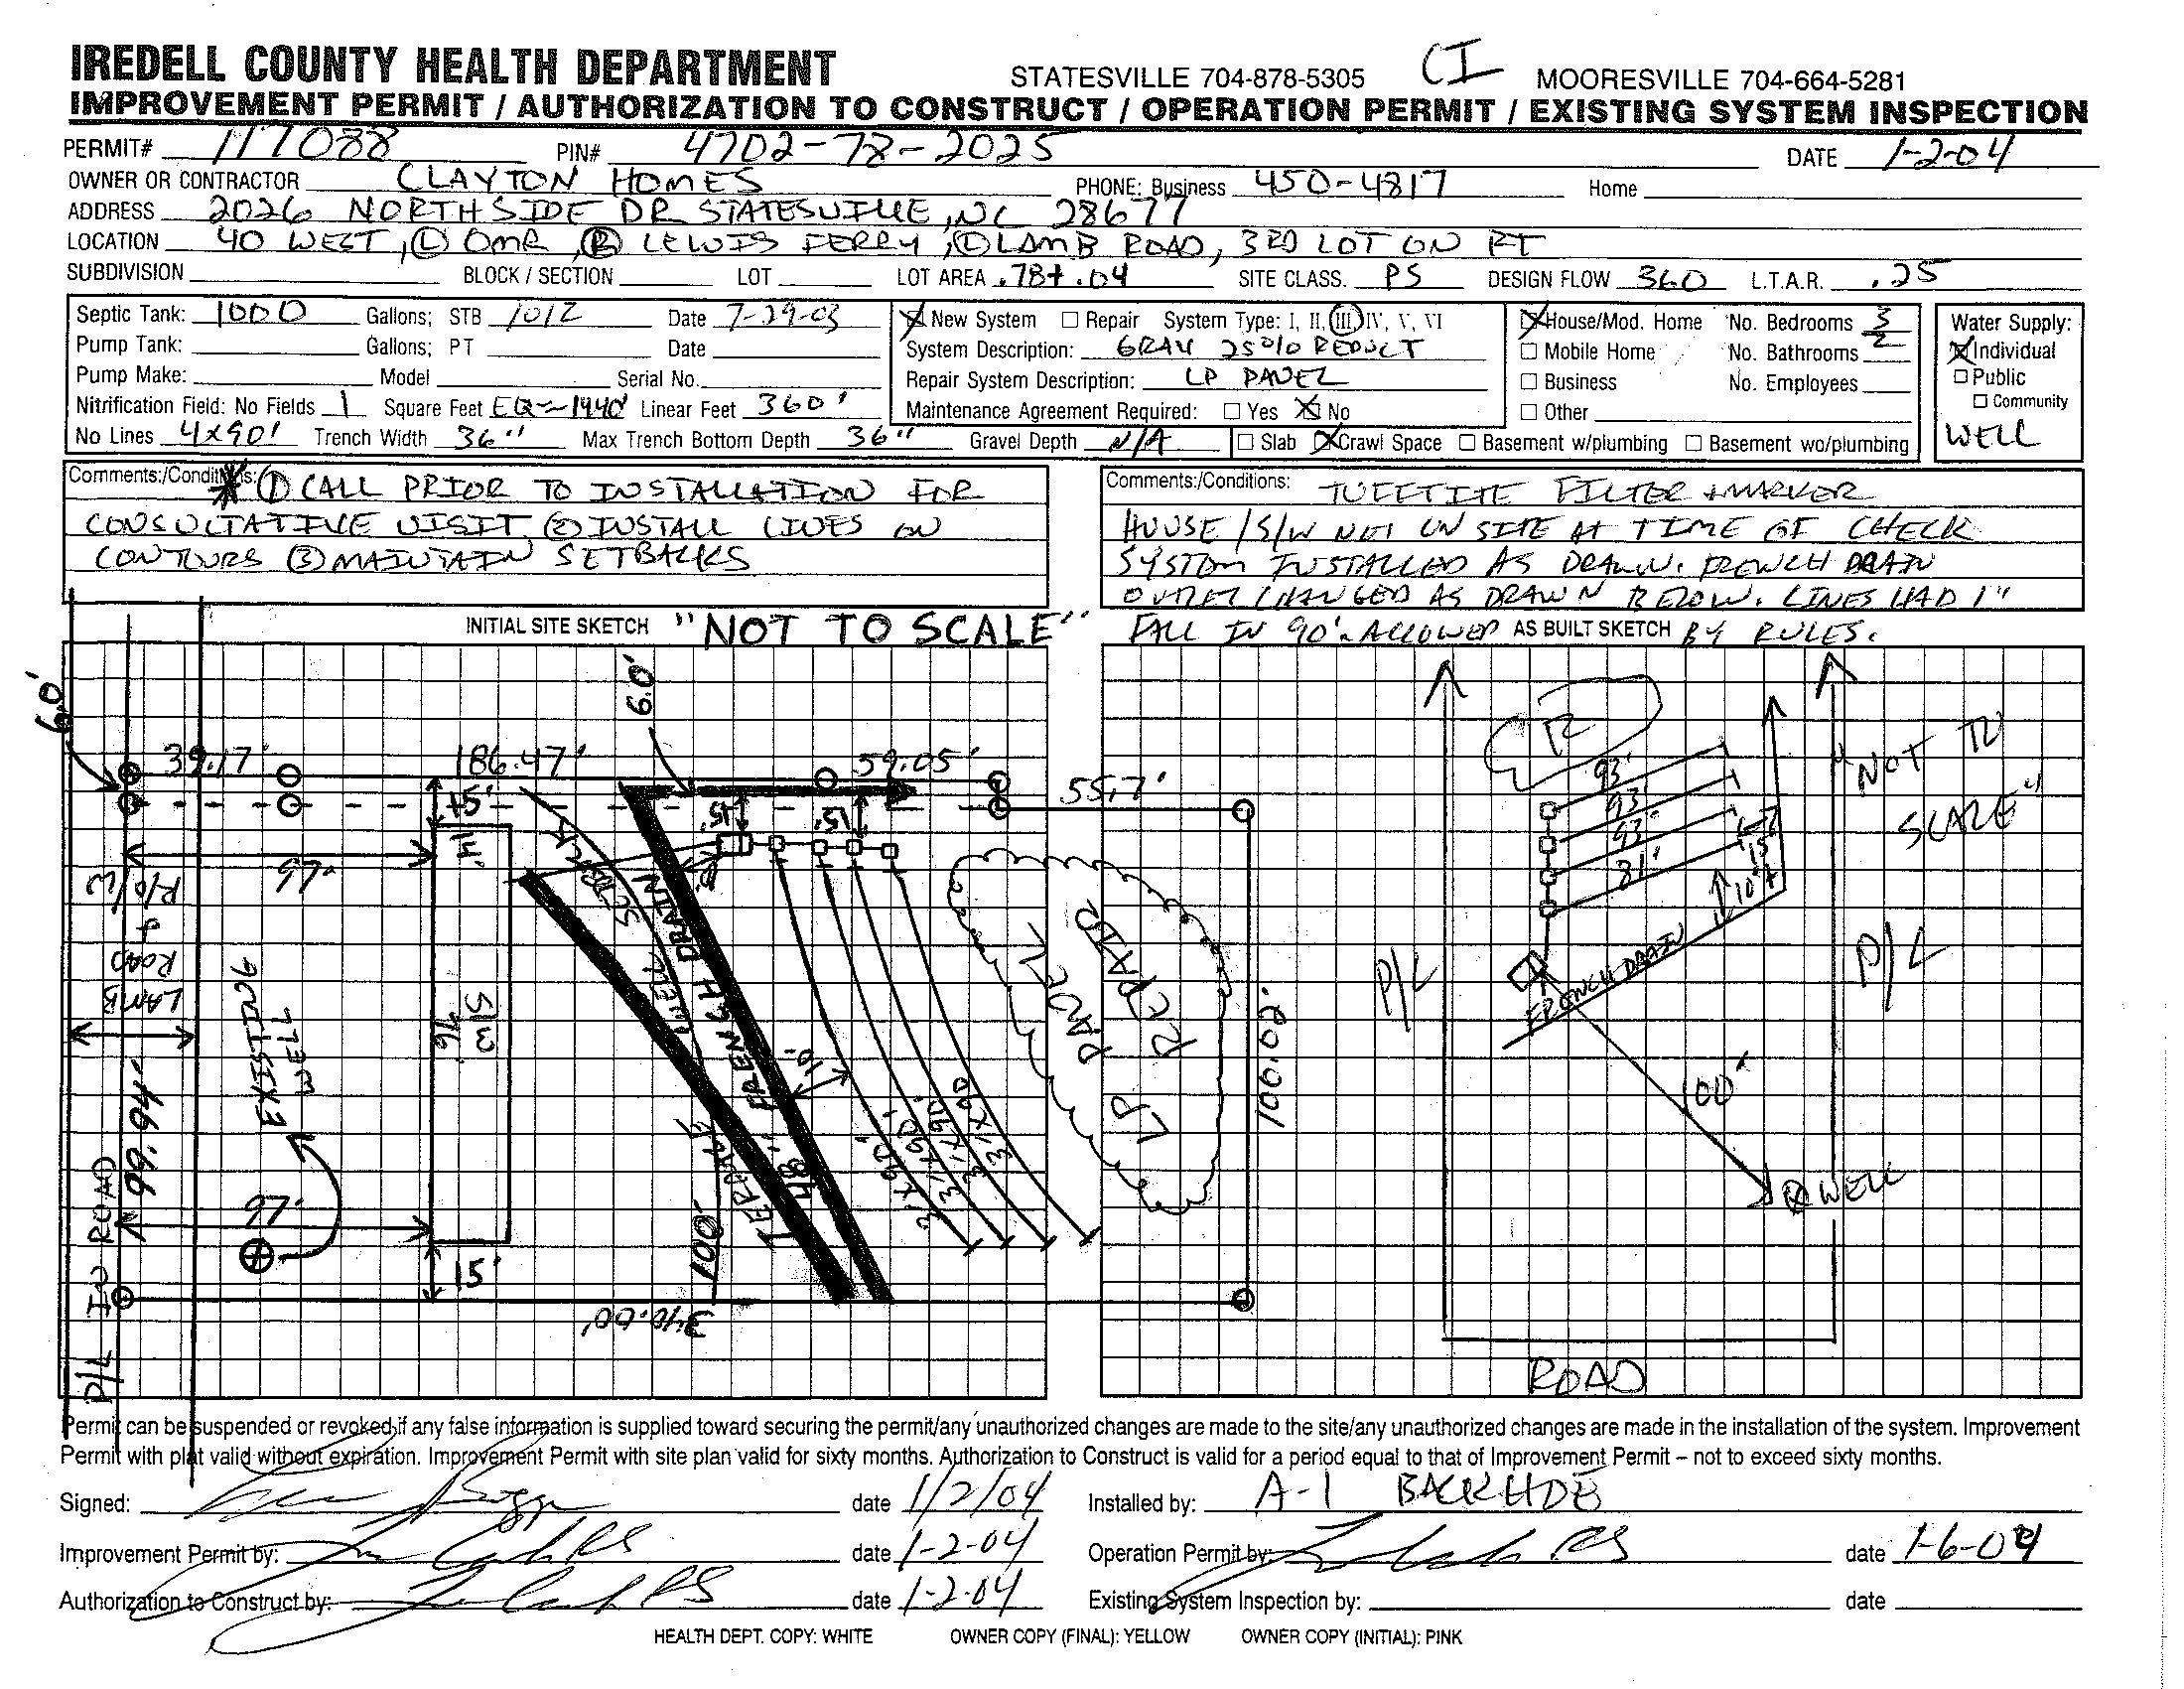 IREDELL COUNTY HEALTH DEPARTMENT STATESVILLE 704-878-5305 CI MOORESVILLE 704-664-5281
IMPROVEMENT PERMIT / AUTHORIZATION TO CONSTRUCT / OPERATION PERMIT / EXISTING SYSTEM INSPECTION
PERMIT# 117088 PIN# 4702-78-2025 DATE 1-2-04
OWNER OR CONTRACTOR CLAYTON HOMES PHONE: Business 450-4817 Home
ADDRESS 2026 NORTHSIDE DR STATESVILLE, NC 28677
LOCATION 40 WEST, (L) OMR, (R) LEWIS FERRY, (L) LAMB ROAD, 3RD LOT ON RT
SUBDIVISION BLOCK / SECTION LOT LOT AREA .78+.04 SITE CLASS. PS DESIGN FLOW 360 L.T.A.R. .25
Septic Tank: 1000 Gallons; STB 1012 Date 7-29-03 New System Repair System Type: I, II, III, IV, V, VI House/Mod. Home No. Bedrooms 3 Water Supply:
Pump Tank: Gallons; PT Date System Description: GRAV 25% REDUCT Mobile Home No. Bathrooms 2 Individual
Pump Make: Model Serial No. Repair System Description: LP PANEL Business No. Employees Public
Nitrification Field: No Fields 1 Square Feet EQ~1440' Linear Feet 360' Maintenance Agreement Required: Yes No Other Community
No Lines 4x90' Trench Width 36" Max Trench Bottom Depth 36" Gravel Depth N/A Slab Crawl Space Basement w/plumbing Basement wo/plumbing WELL
Comments:/Conditions: (1) CALL PRIOR TO INSTALLATION FOR
CONSULTATIVE VISIT (2) INSTALL LINES ON
CONTOURS (3) MAINTAIN SETBACKS
Comments:/Conditions: TUFFTITE FILTER + MARKER
HOUSE / S/W NOT ON SITE AT TIME OF CHECK
SYSTEM INSTALLED AS DRAWN. FRENCH DRAIN
OUTLET CHANGED AS DRAWN BELOW. LINES HAD 1"
FALL IN 90'~ALLOWED BY RULES.
INITIAL SITE SKETCH "NOT TO SCALE"
AS BUILT SKETCH
6.0'
6.0'
39.17'
186.47'
59.05'
55.7'
15'
15'
15'
14'
97'
R/W
LAMB ROAD
EXISTING WELL
SW
76'
WELL SETBACK
FRENCH DRAIN
48"
10'
3'x90'
3'x90'
3'x90'
3'x90'
LP PANEL REPAIR
100.02'
99.46'
97'
15'
100'
340.00'
P/L IN ROAD
R
93'
93'
93'
81'
15'
10'+
FRENCH DRAIN
P/L
P/L
"NOT TO SCALE"
100'+
WELL
ROAD
Permit can be suspended or revoked if any false information is supplied toward securing the permit/any unauthorized changes are made to the site/any unauthorized changes are made in the installation of the system. Improvement
Permit with plat valid without expiration. Improvement Permit with site plan valid for sixty months. Authorization to Construct is valid for a period equal to that of Improvement Permit – not to exceed sixty months.
Signed: date 1/2/04 Installed by: A-1 BACKHOE
Improvement Permit by: RS date 1-2-04 Operation Permit by: RS date 1-6-04
Authorization to Construct by: RS date 1-2-04 Existing System Inspection by: date
HEALTH DEPT. COPY: WHITE OWNER COPY (FINAL): YELLOW OWNER COPY (INITIAL): PINK